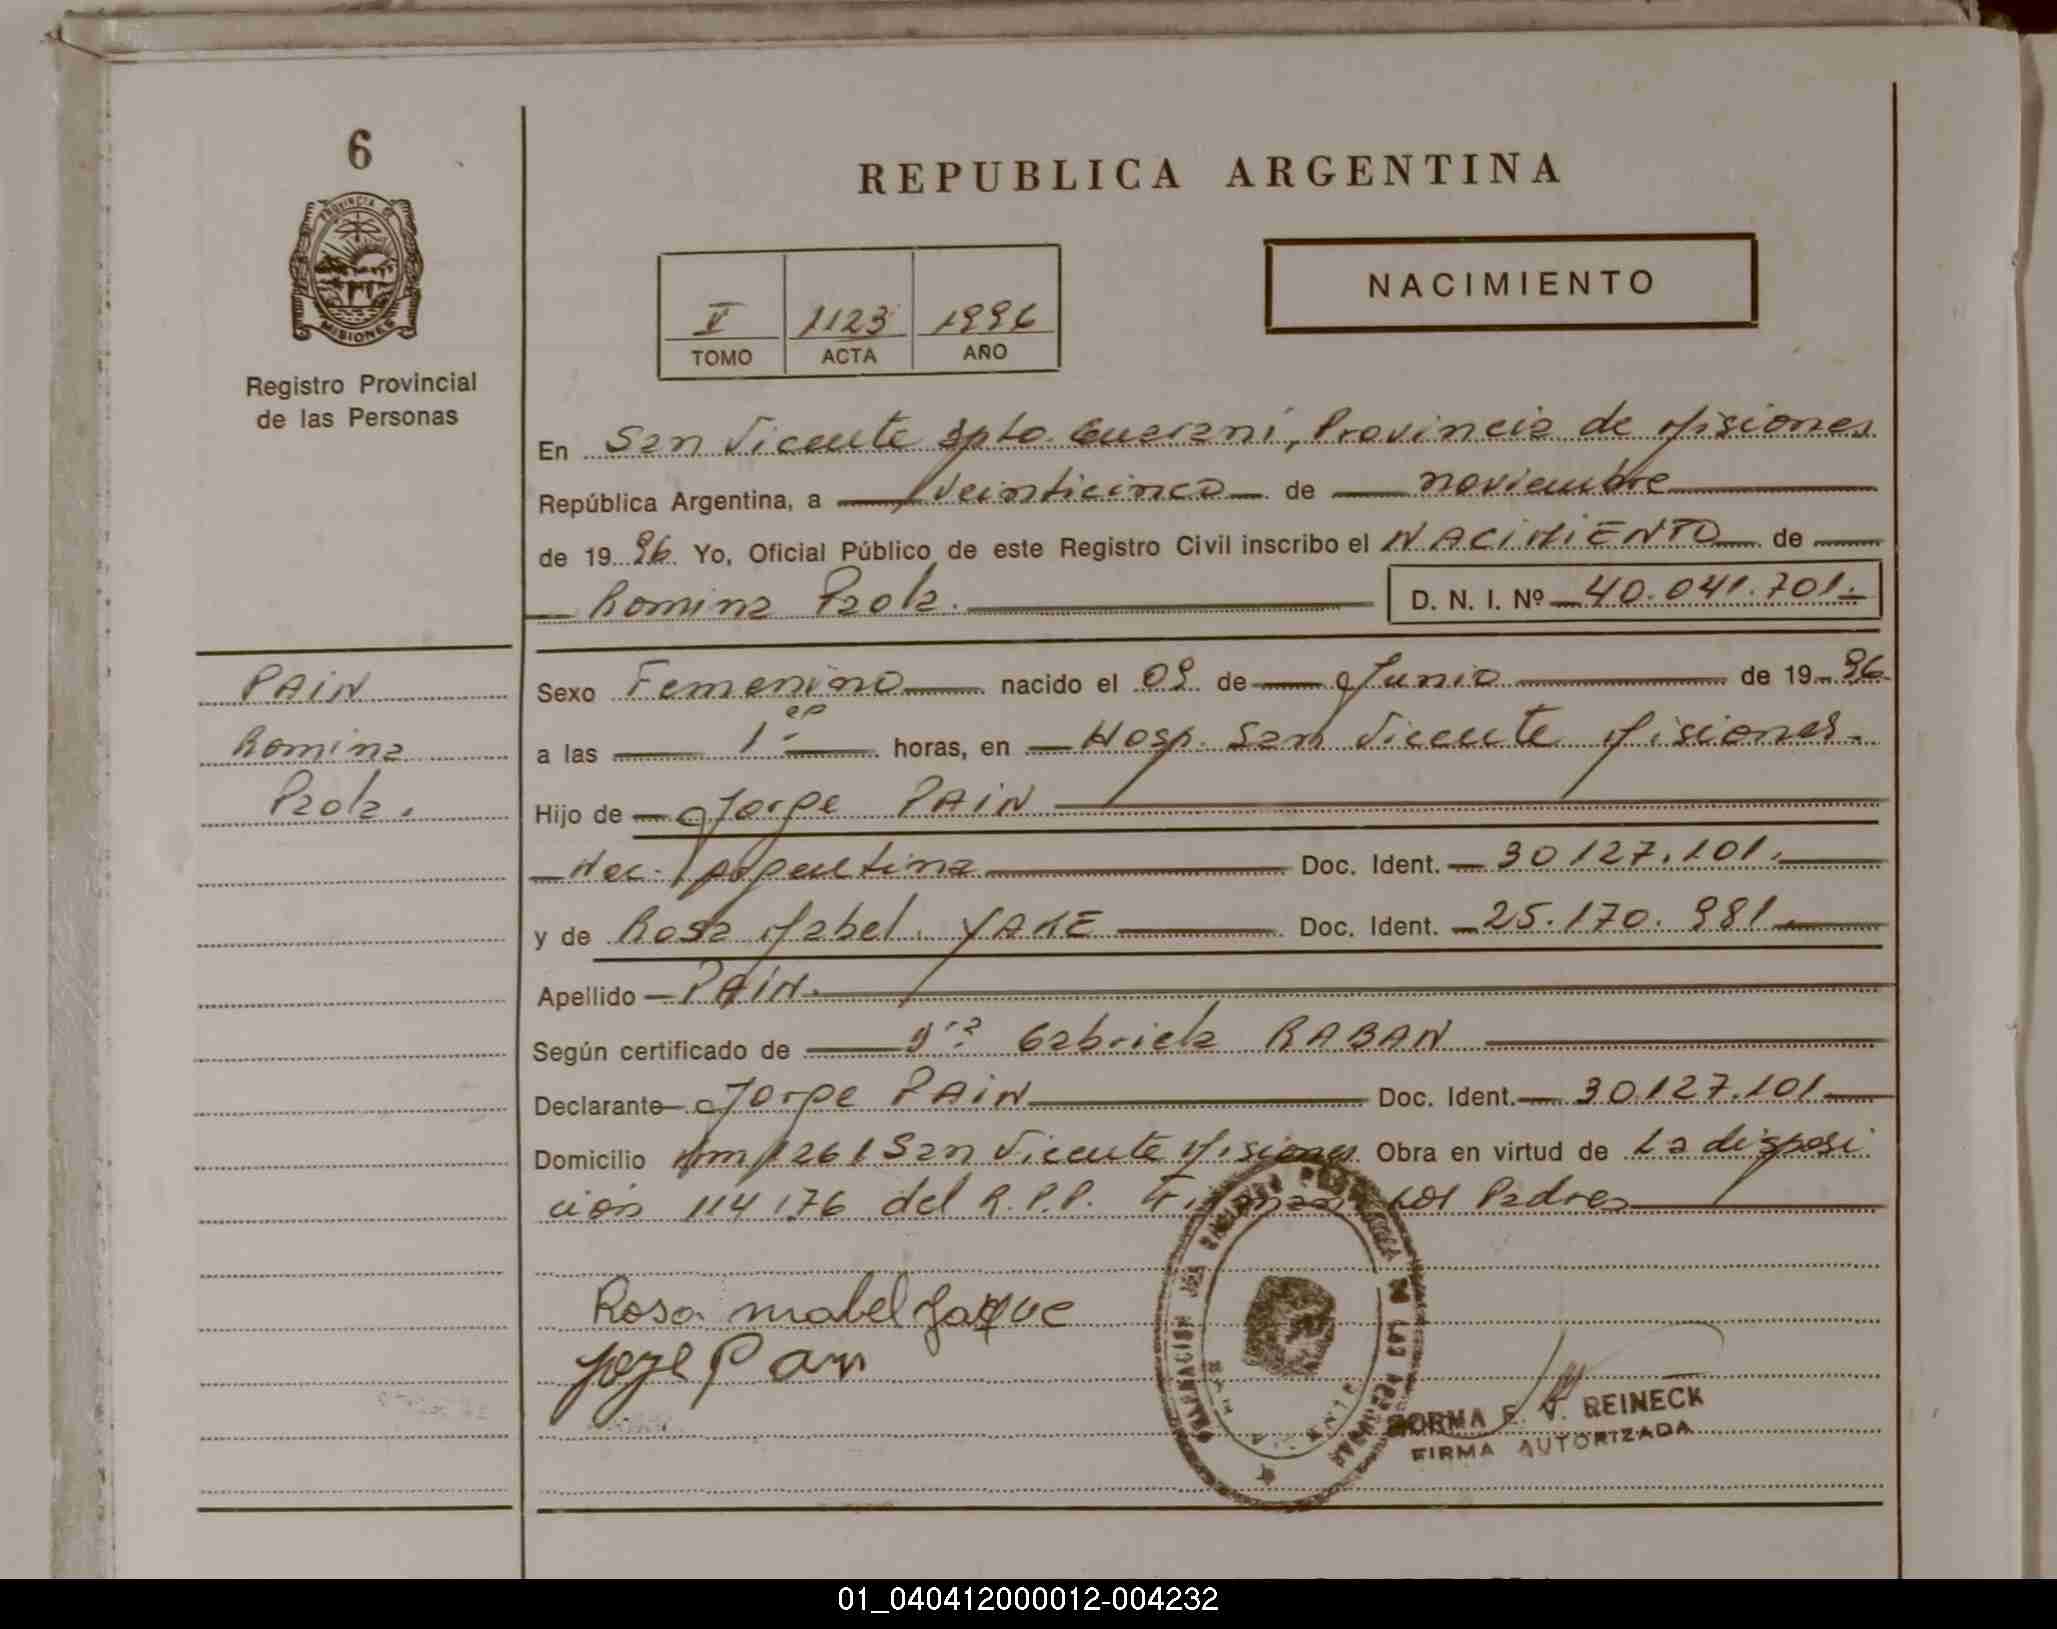 6
REPUBLICA ARGENTINA
PROVINCIA DE
MISIONES
Registro Provincial
de las Personas
NACIMIENTO
V 1123 1996
TOMO ACTA AÑO
En San Vicente Dpto. Guarani, Provincia de Misiones
República Argentina, a veinticinco de noviembre
de 1996 Yo, Oficial Público de este Registro Civil inscribo el NACIMIENTO de
Romina Paola. D. N. I. Nº 40.041.701.
PAIN
Romina
Paola.
Sexo Femenino nacido el 09 de Junio de 1996
a las 1 horas, en Hosp. San Vicente Misiones.
Hijo de Jorge PAIN
Nac. Argentina Doc. Ident. 30127.101.
y de Rosa Mabel YAKE Doc. Ident. 25.170.981.
Apellido PAIN.
Según certificado de Dra Gabriela RABAN
Declarante Jorge PAIN Doc. Ident. 30.127.101
Domicilio Km 1261 San Vicente Misiones. Obra en virtud de La disposi
ción 114176 del R.P.P. Firman los Padres
Rosa mabel
NORMA E. V. REINECK
FIRMA AUTORIZADA
01_040412000012-004232